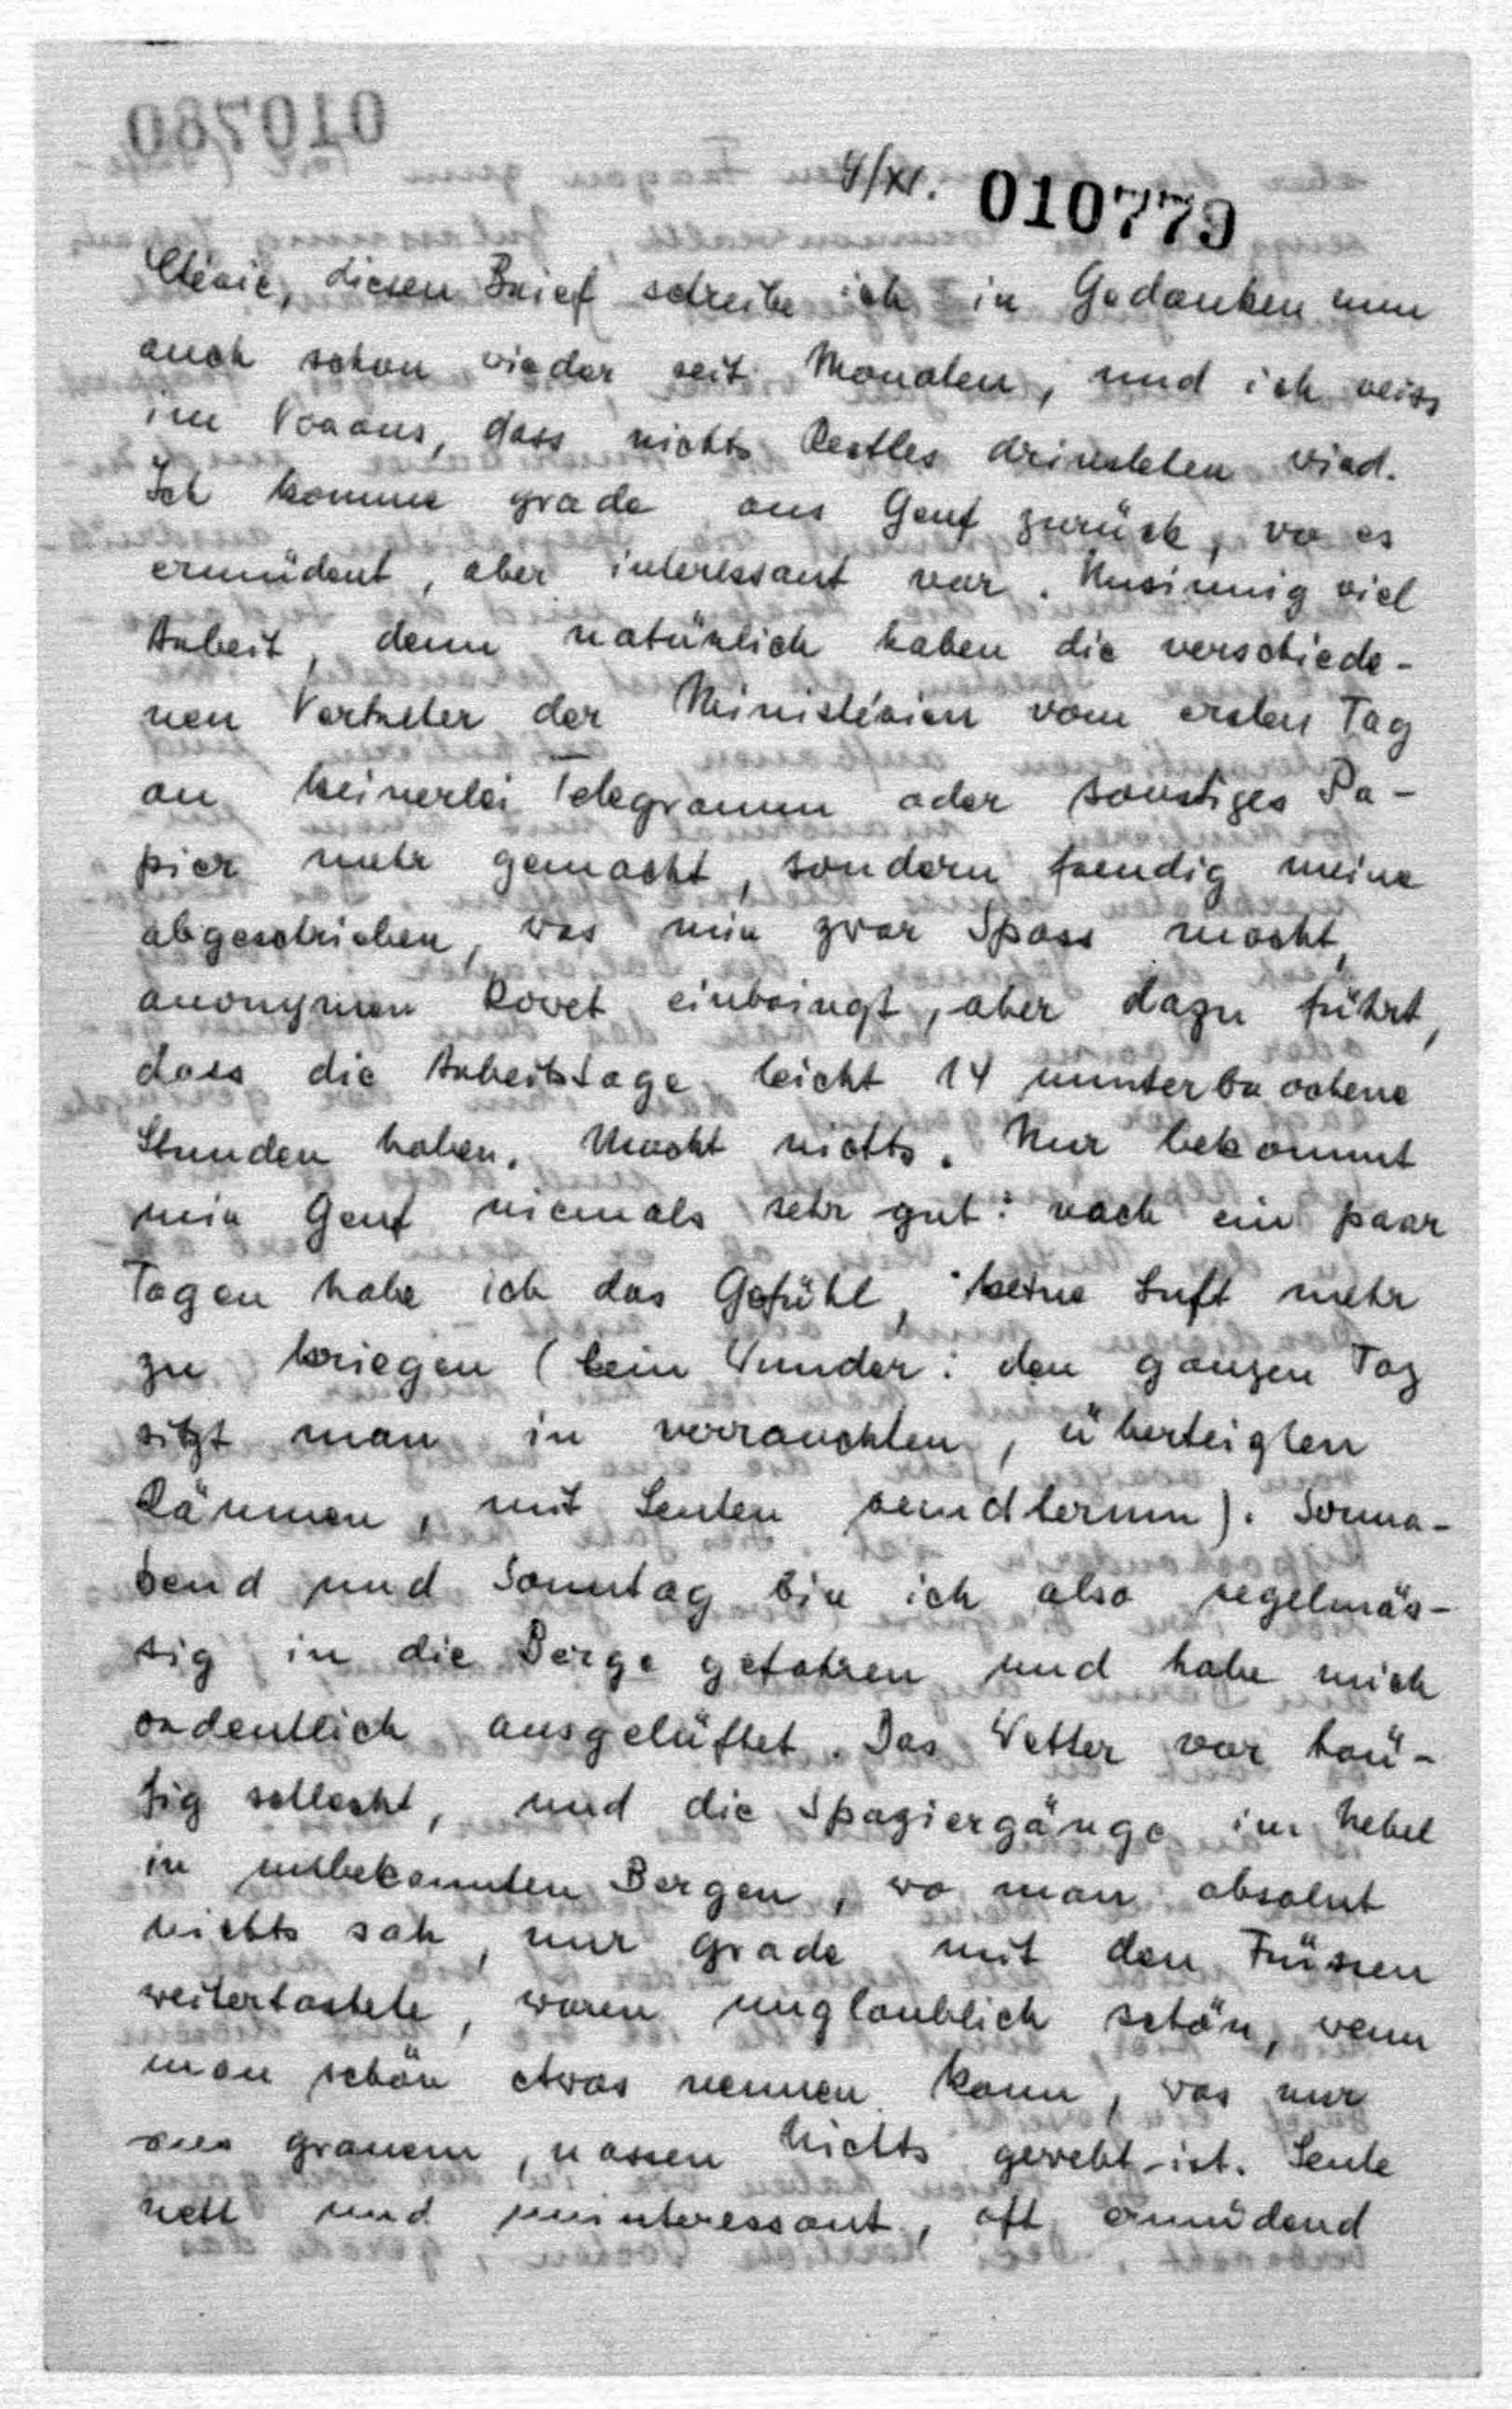 4/XI. 010779
Chérie, diesen Brief schreibe ich in Gedanken nun
auch schon wieder seit Monaten, und ich weiss
im Voraus, dass nichts Rechtes drinstehen wird.
Ich komme grade aus Genf zurück, wo es
ermüdent, aber interessant war. Unsinnig viel
Arbeit, denn natürlich haben die verschiede-
nen Vertreter der Ministerien vom ersten Tag
an keinerlei Telegramm oder sonstiges Pa-
pier mehr gemacht, sondern freudig meine
abgeschrieben, was mir zwar Spass macht,
anonymen einbringt, aber dazu führt,
dass die Arbeitstage leicht 14 ununterbrochene
Stunden haben. Macht nichts. Nur bekommt
mir Genf niemals sehr gut: nach ein paar
Tagen habe ich das Gefühl, keine Luft mehr
zu kriegen (kein Wunder: den ganzen Tag
sitzt man in verrauchten,
Räumen, mit Leuten rundherum). Sonna-
bend und Sonntag bin ich also regelmäs-
sig in die Berge gefahren und habe mich
ordentlich ausgelüftet. Das Wetter war häu-
fig schlecht, und die Spaziergänge im Nebel
in unbekannten Bergen, wo man absolut
nichts sah, nur grade mit den Füssen
weitertastete, waren unglaublich schön, wenn
man schön etwas nennen kann, was nur
aus grauem, nassen Nichts gewebt ist. Leute
nett und uninteressant, oft ermüdend